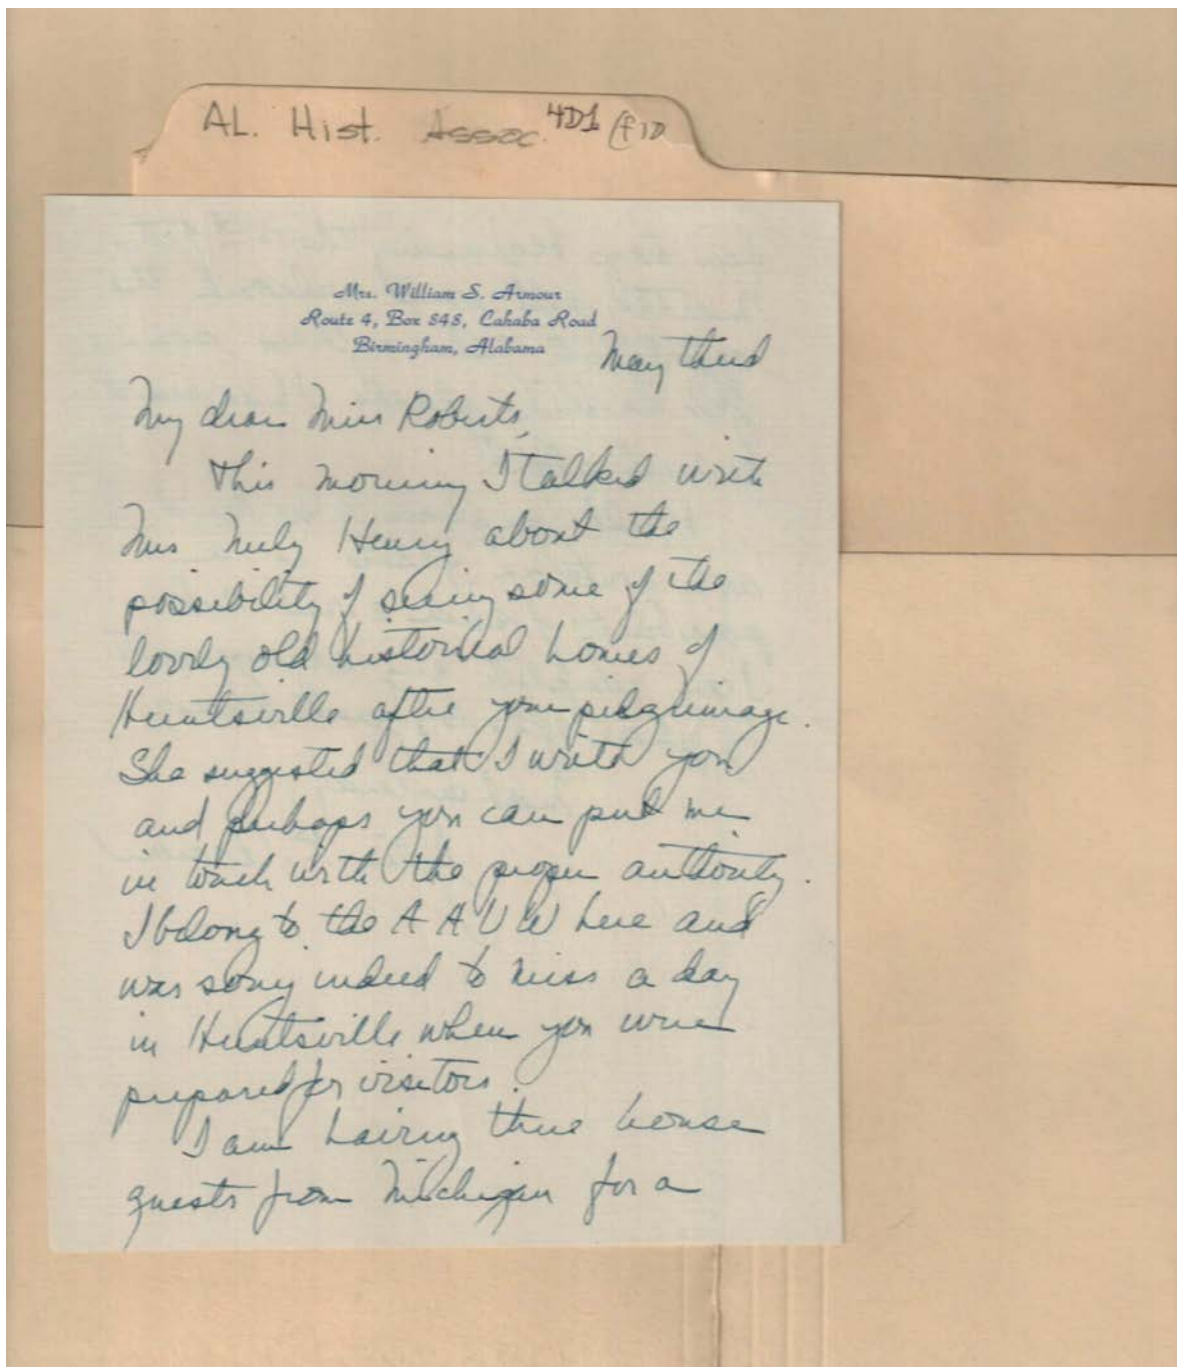 AL. Hist. Assoc. 4D1 (f10
Mrs. William S. Armour
Route 4, Box 848, Cahaba Road
Birmingham, Alabama
May third
My dear Miss Roberts,
This morning I talked with
Mrs Neely Henry about the
possibility of seeing some of the
lovely old historical homes of
Huntsville after your pilgrimage.
She suggested that I write you
and perhaps you can put me
in touch with the proper authority.
I belong to the A A U W here and
was sorry indeed to miss a day
in Huntsville when you were
prepared for visitors.
I am having three house
guests from Michigan for a